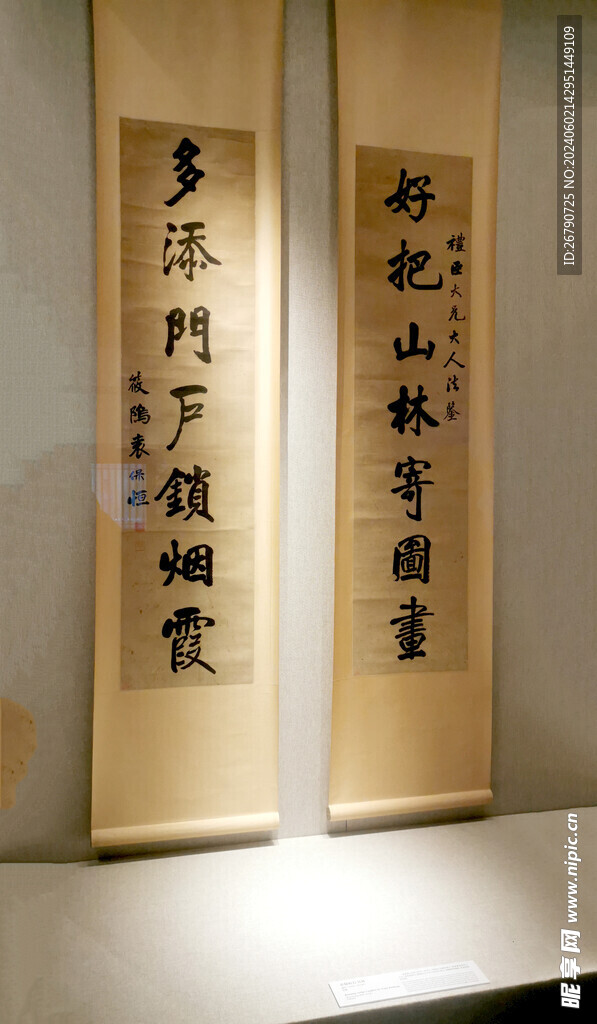 好把山林寄圖畫
禮臣大兄大人法鑒
多添門戶鎖烟霞
筱隖袁保恒
ID:26790725 NO:20240602142951449109
昵享网 www.nipic.cn